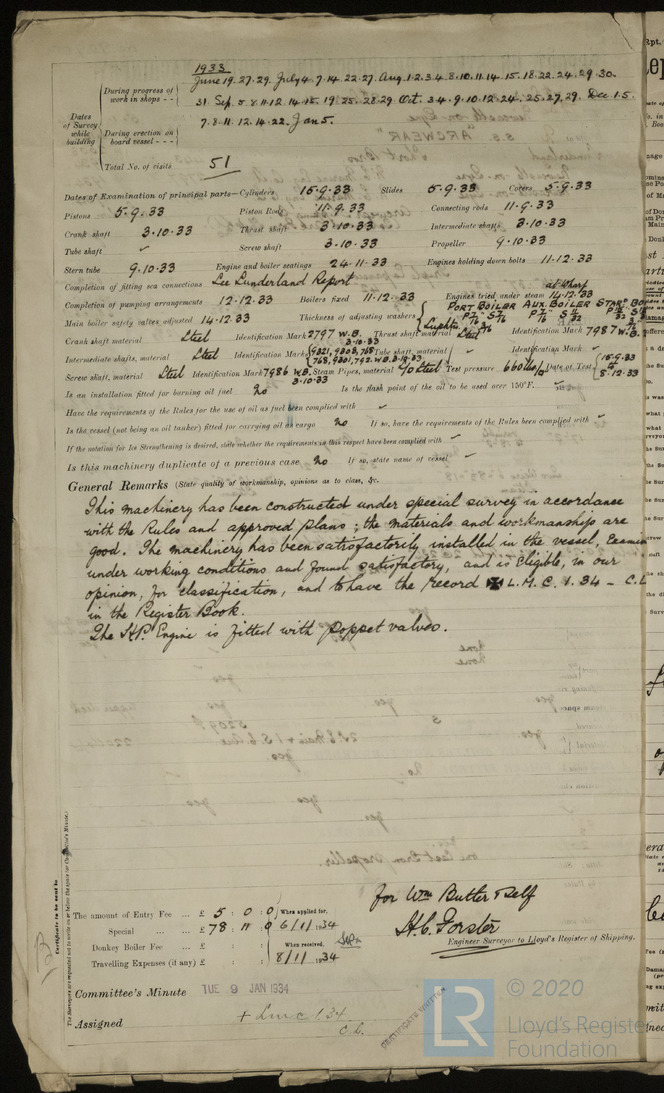 1933
During progress of work in shops - - June 19. 27. 29. July 4. 7. 14. 22. 27. Aug. 1. 2. 3. 4. 8. 10. 11. 14. 15. 18. 22. 24. 29. 30.
31. Sep. 5. 8. 11. 12. 14. 15. 19. 25. 28. 29 Oct. 3. 4. 9. 10. 12. 24. 25. 27. 29. Dec. 1. 5.
Dates of Survey while building
During erection on board vessel - - - 7. 8. 11. 12. 14. 22. Jan 5.
Total No. of visits 51
Dates of Examination of principal parts—Cylinders 15.9.33 Slides 5.9.33 Covers 5.9.33
Pistons 5.9.33 Piston Rods 11.9.33 Connecting rods 11.9.33
Crank shaft 3.10.33 Thrust shaft 3.10.33 Intermediate shafts 3.10.33
Tube shaft ✓ Screw shaft 3.10.33 Propeller 9.10.33
Stern tube 9.10.33 Engine and boiler seatings 24.11.33 Engines holding down bolts 11.12.33
Completion of fitting sea connections See Sunderland Report
Completion of pumping arrangements 12.12.33 Boilers fixed 11.12.33 Engines tried under steam at Wharf 14.12.33
Main boiler safety valves adjusted 14.12.33 Thickness of adjusting washers PORT BOILER AUX. BOILER STAR BO
Crank shaft material Steel Identification Mark 2797 W.B. 3.10.33 Thrust shaft material Steel Identification Mark 7987 W.B.
Intermediate shafts, material Steel Identification Marks Tube shaft, material ✓ Identification Mark ✓
Screw shaft, material Steel Identification Mark 7986 W.B. 3.10.33 Steam Pipes, material Steel Test pressure 660 Date of Test 15.9.33 to 5.12.33
Is an installation fitted for burning oil fuel no Is the flash point of the oil to be used over 150°F. ✓
Have the requirements of the Rules for the use of oil as fuel been complied with ✓
Is the vessel (not being an oil tanker) fitted for carrying oil as cargo no If so, have the requirements of the Rules been complied with ✓
If the notation for Ice Strengthening is desired, state whether the requirements in this respect have been complied with ✓
Is this machinery duplicate of a previous case No If so, state name of vessel ✓
General Remarks (State quality of workmanship, opinions as to class, &c.
This machinery has been constructed under special survey in accordance
with the Rules and approved plans; the materials and workmanships are
good. The machinery has been satisfactorily installed in the vessel,
under working conditions and found satisfactory, and is eligible, in our
opinion, for classification, and to have the record ✠ L.M.C. 1.34 – C.L
in the Register Book.
The H.P. Engine is fitted with poppet valves.
for Wm Butter & self
H.C. Forster
Engineer Surveyor to Lloyd's Register of Shipping.
The amount of Entry Fee ... £ 5 : 0 : 0 When applied for,
Special ... £ 78 : 11 : 0 6/1/1934
Donkey Boiler Fee ... £ : : When received,
Travelling Expenses (if any) £ : : 8/1/1934
Committee's Minute TUE 9 JAN 1934
Assigned + Lmc 1.34
C.L.
CERTIFICATE WRITTEN
Certificate to be sent to
LR
© 2020
Lloyd's Register
Foundation